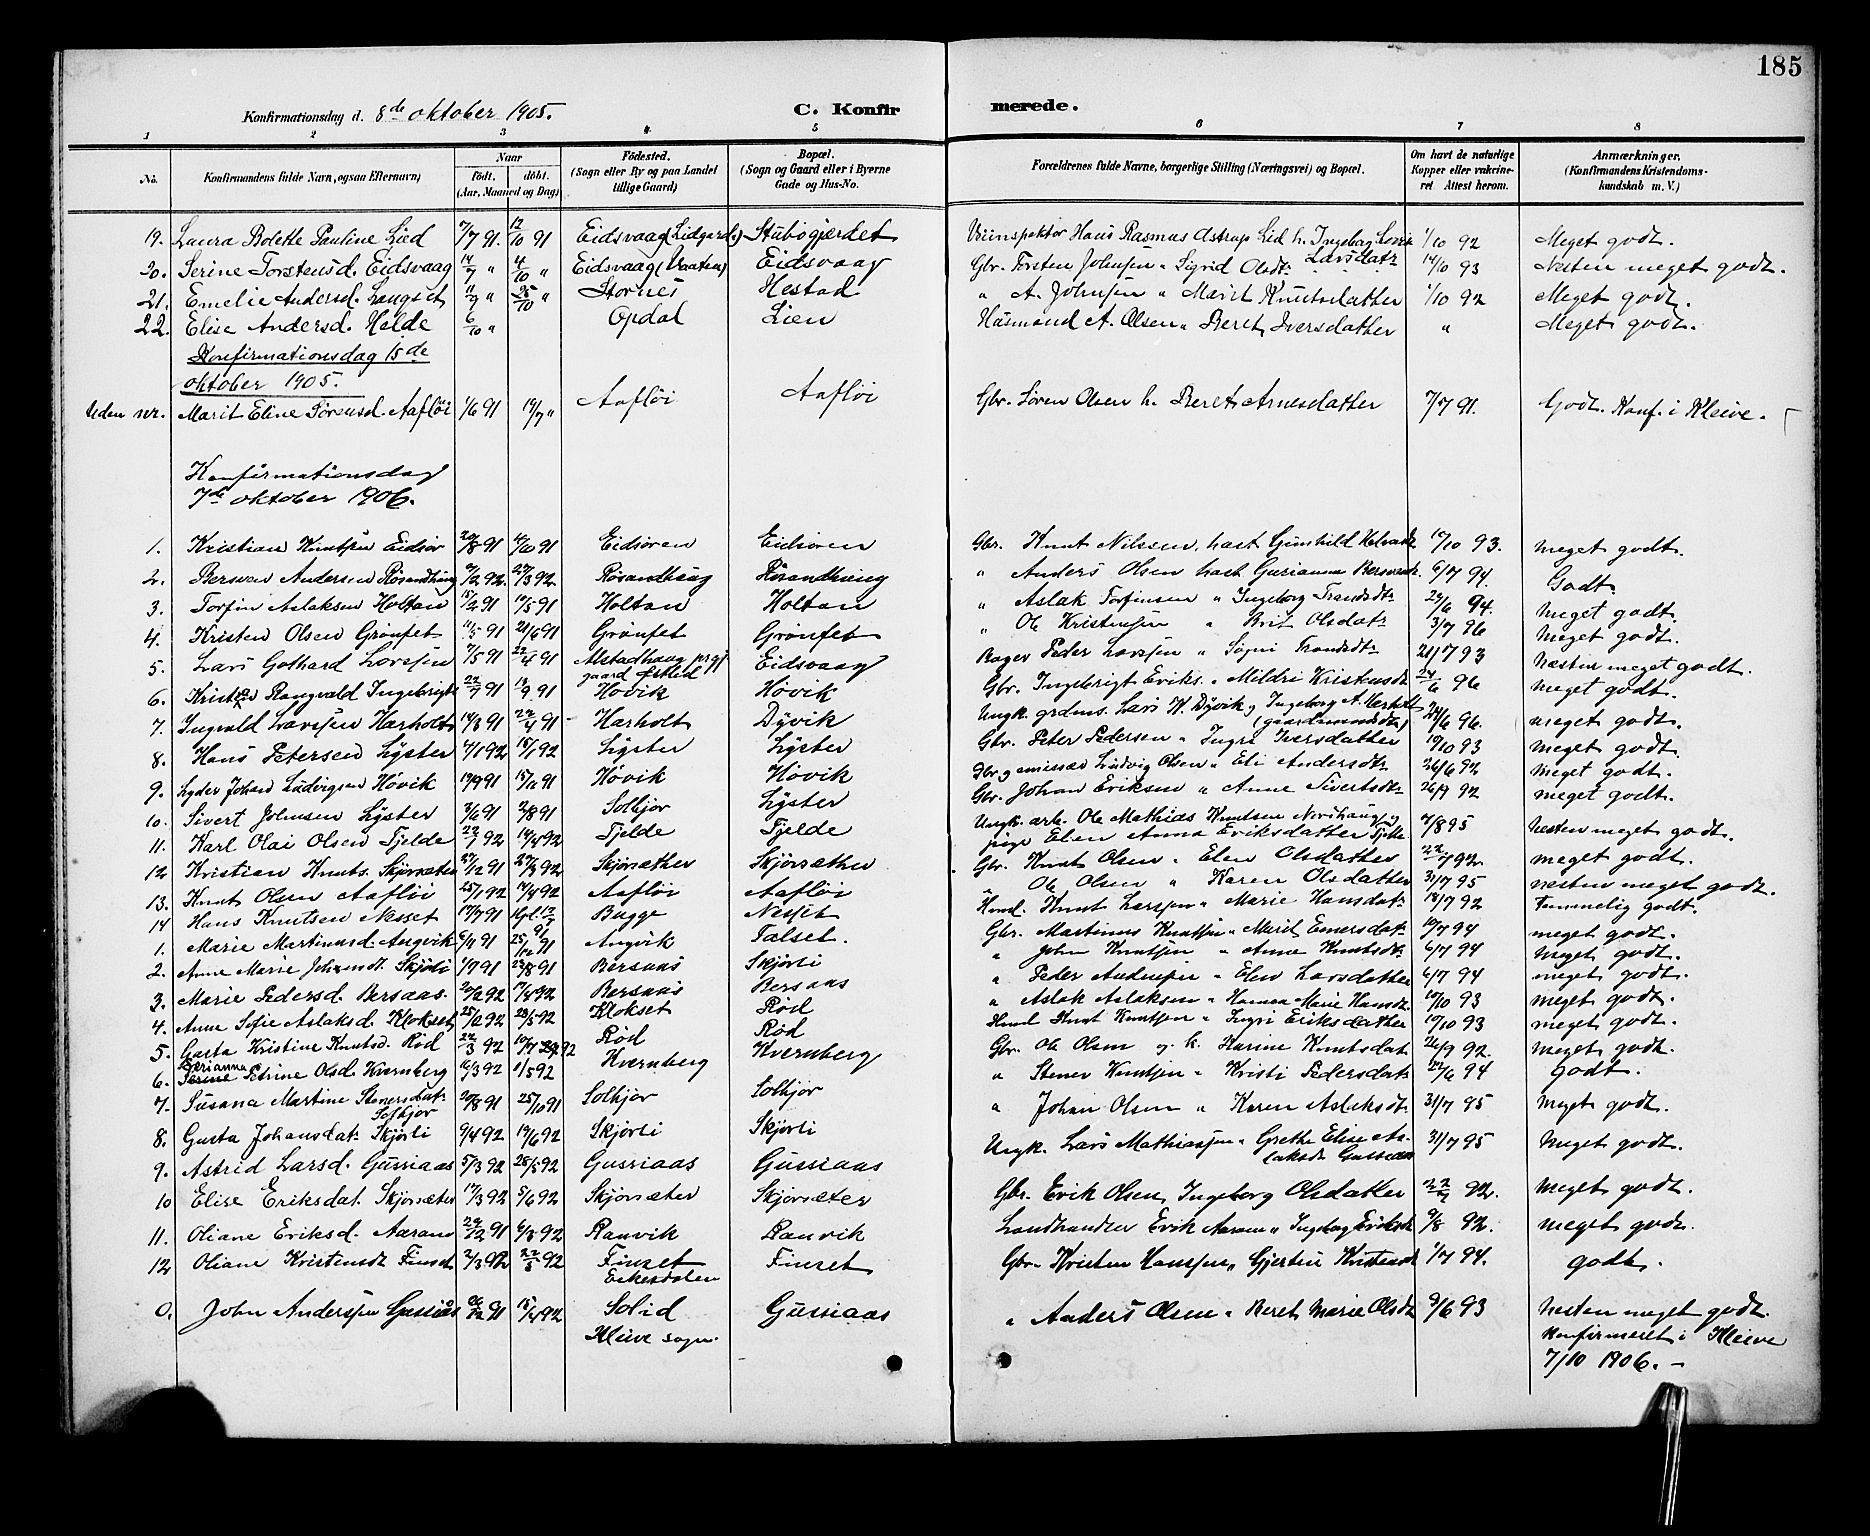 185
Konfirmationsdag d. 8de oktober 1905. C. Konfirmerede.
1 2 3 4 5 6 7 8
No. Konfirmandens fulde Navn, ogsaa Efternavn) Naar födt. döbt. (Aar, Maaned og Dag) Födested. (Sogn eller By og paa Landet tillige Gaard) Bopæl. (Sogn og Gaard eller i Byerne Gade og Hus-No. Forældrenes fulde Navne, borgerlige Stilling (Næringsvei) og Bopæl. Om havt de naturlige Kopper eller vakcineret Attest herom. Anmærkninger. (Konfirmandens Kristendomskundskab m. V.)
19. Laura Bolette Pauline Lied 7/7 91. 12/10 91 Eidsvaag (Lidgard.) Stubøgjerdet Hans Rasmus Astrup Lid h. Ingeborg Lovise Larsdatr 1/10 92 Meget godt.
20. Serine Torstensd. Eidsvaag 14/9 " 4/10 " Eidsvaag Eidsvaag Gbr. Torsten Johnsen " Sigrid Olsdtr 14/10 93 Nesten meget godt.
21. Emelie Andersd. Langset 11/9 " 25/10 " Stornes Hestad " A. Johnsen " Marit Knutsdatter 1/10 92 Meget godt.
22. Elise Andersd. Helde 6/10 " Opdal Lien Husmand A. Olsen " Beret Iversdatter " Meget godt.
Konfirmationsdag 15de
oktober 1905.
Uden nr. Marit Eline Sörensd. Aaflöi 1/6 91 19/7 " Aaflöi Aaflöi Gbr. Sören Olsen h. Beret Arnesdatter 7/7 91. Godt. Konf. i Kleive.
Konfirmationsdag
7de oktober 1906.
1. Kristian Knutsen Eidsör 20/8 91 4/10 91 Eidsören Eidsören Gbr. Knut Nilssen, hust Gunhild 10/10 93. meget godt.
2. Bersven Andersen Rösandhaug 2/2 92. 27/3 92. Rösandhaug Rösandhaug " Anders Olsen hust Gurianna 6/7 94. Godt.
3. Torfin Aslaksen Holtan 15/2 91 10/5 91 Holtan Holtan " Aslak Torfinsen " Ingeborg Trondsdtr 24/6 94. meget godt.
4. Kristen Olsen Grönset 11/5 91 21/6 91 Grönset Grönset " Ole Kristensen " Brit Olsdatr 3/7 96 meget godt.
5. Lars Gothard Larssen 7/5 91 22/4 91 Alstadhaug prgj gaard Eidsvaag Bager Peder Larssen " Trondsdtr 21/7 93 Nesten meget godt.
6. Kristen Rangvald Ingebrigts 22/7 91 13/9 91 Hövik Hövik Gbr. Ingebrigt Eriks. " Mildri Kristensdt 24/6 96 meget godt.
7. Ingvald Larssen Harholt 14/3 91 22/4 91 Harholt Dÿvik Ungk. grdms. Lars K. Dÿvik, Ingeborg A. Harholt (gaardmandsdtr) 24/6 96. meget godt.
8. Hans Petersen Lÿster 4/1 92 15/1 92 Lÿster Lÿster Gbr. Peter Pedersen " Ingri Iversdatter 10/10 93 meget godt.
9. Lyder Johan Ludvigsen Hövik 19/9 91 15/11 91 Hövik Hövik Gbr. Ludvig Olsen " Eli Andersdtr 26/6 92 meget godt.
10. Sivert Johnsen Lÿster 3/6 91 2/8 91 Solbjör Lÿster Gbr. Johan Eriksen " Anne Sivertsdtr 26/9 92 meget godt.
11. Karl Olai Olsen Tjelde 22/2 92 14/4 92 Tjelde Tjelde Ungk. arb. Ole Mathias Knutsen Nordhaug, pige Elen Anna Eriksdatter 7/8 95 Nesten meget godt.
12 Kristian Knuts. Skjörsæter 27/12 91 27/3 92 Skjörsæther Skjörsæther Gbr. Knut Olsen " Elen Olsdatter 22/7 92. meget godt.
13. Knut Olsen Aaflöi 25/1 92 14/4 92 Aaflöi Aaflöi " Ole Olsen " Karen Olsdatter 31/7 95 nesten meget godt.
14 Hans Knutsen Nesset 17/7 91 Bugge Nesset Husm. Knut Larssen " Marie Hansdatr 18/7 92 Temmelig godt.
1. Marie Martinusd. Angvik 6/11 91 25/12 91 Angvik Talset. Gbr. Martinus Knutsen " Marit Einersdatr 10/7 94 meget godt.
2. Anne Marie Johansdt. Skjörli 1/7 91 23/8 91 Bersaas Skjörli " John Knutsen " Anne Knutsdtr 6/7 94 meget godt.
3. Marie Pedersd. Bersaas. 20/2 92 17/4 92 Bersaas Bersaas " Peder Andersen " Elen Larsdatter 6/7 94 meget godt.
4. Anne Sofie Aslaksd. Klokset 25/12 92 23/5 92 Klokset Röd " Aslak Aslaksen " Hanna Marie Hansdt. 10/10 93 meget godt.
5. Gusta Kristine Knutsd. Röd 22/3 92 10/7 92 Röd Röd Husm. Knut Knutsen " Ingri Eriksdatter 10/10 93 meget godt.
6. Serianna Petrine Olsd. Kvernberg 16/3 92 1/5 92 Kvernberg Kvernberg Gbr. Ole Olsen og h. Karine Knutsdatr 26/9 92. meget godt.
7. Susana Martine Stenersdatr Solbjör 20/8 91 25/10 91 Solbjör Solbjör " Stener Knutsen " Kristi Pedersdatr 24/6 94 Godt.
8. Gusta Johansdatr Skjörli 9/4 92 19/6 92 Skjörli Skjörli " Johan Olsen " Karen Aslaksdtr 31/7 95 meget godt.
9. Astrid Larsd. Gussiaas 5/3 92 28/5 92 Gussiaas Gussiaas Ungk. Lars Mathiassen " Grethe Elise Aslaksdt Gussiaas 31/7 95 meget godt.
10 Elise Eriksdat. Skjörsæter 17/3 92 5/6 92 Skjörsæter Skjörsæter Gbr. Erik Olsen, Ingeborg Olsdatter 22/7 92. meget godt.
11. Oliane Eriksd. Aaram 24/12 91 6/3 92 Ranvik Ranvik Landhandler Erik Aaram " Ingeborg Eriksdt 9/8 92. meget godt.
12 Oliane Kristensdt Finset 2/3 92 22/5 92 Finset Eikesdalen Finset Gbr. Kristen Hanssen " Gjertine Knutsdt 1/7 94. godt.
0. John Anderssen Gussiås 26/12 91 18/4 92 Solid Kleive sogn. Gussiaas " Anders Olsen " Beret Marie Olsdt 9/6 93 Nesten meget godt.
Konfirmeret i Kleive
7/10 1906. -